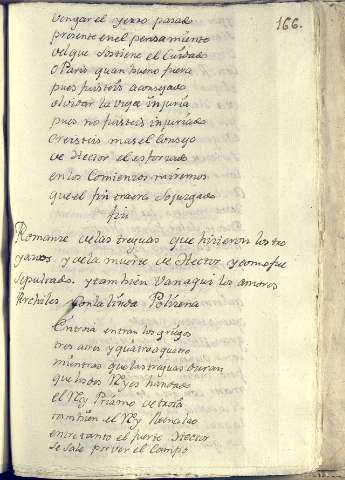 166.
vengar el yerro pasado
presente en el pensamiento
del que sostiene el Cuidado
o Paris quan bueno fuera
pues fuisteis aconsejado
olvidar la vieja injuria
pues no fuisteis injuriado
creisteis mas el Consejo
de Hector el esforzado
en los Comienzos miremos
que el fin traera sojuzgado
fin
Romanze de las treguas que hizieron los tro
yanos y de la muerte de Hector y como fue
sepultado. y tambien van aqui los amores
Archiles con la linda Polixena
En troya entran los griegos
tres a tres y quatro a quatro
mientras que las treguas duran
que los dos Reyes han dado
el Rey Priamo de troia
tambien el Rey Menelao
entre tanto el fuerte Hector
se sale por ver el Campo